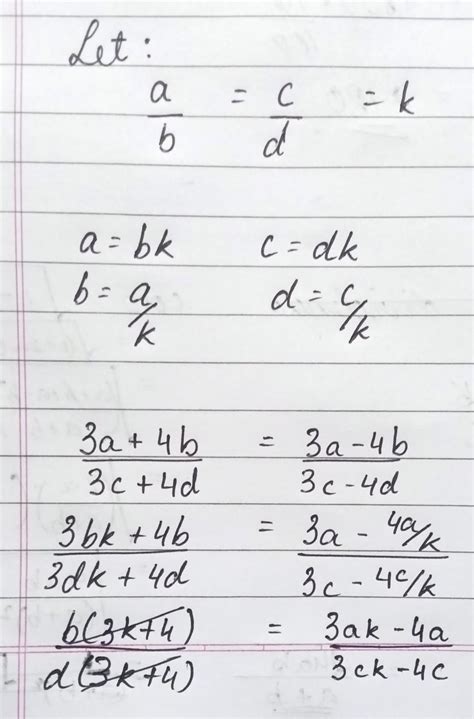 Let :
a/b = c/d = k
a = bk c = dk
b = a/k d = c/k
3a + 4b / 3c + 4d = 3a - 4b / 3c - 4d
3bk + 4b / 3dk + 4d = 3a - 4a/k / 3c - 4c/k
b(3k+4) / d(3k+4) = 3ak - 4a / 3ck - 4c